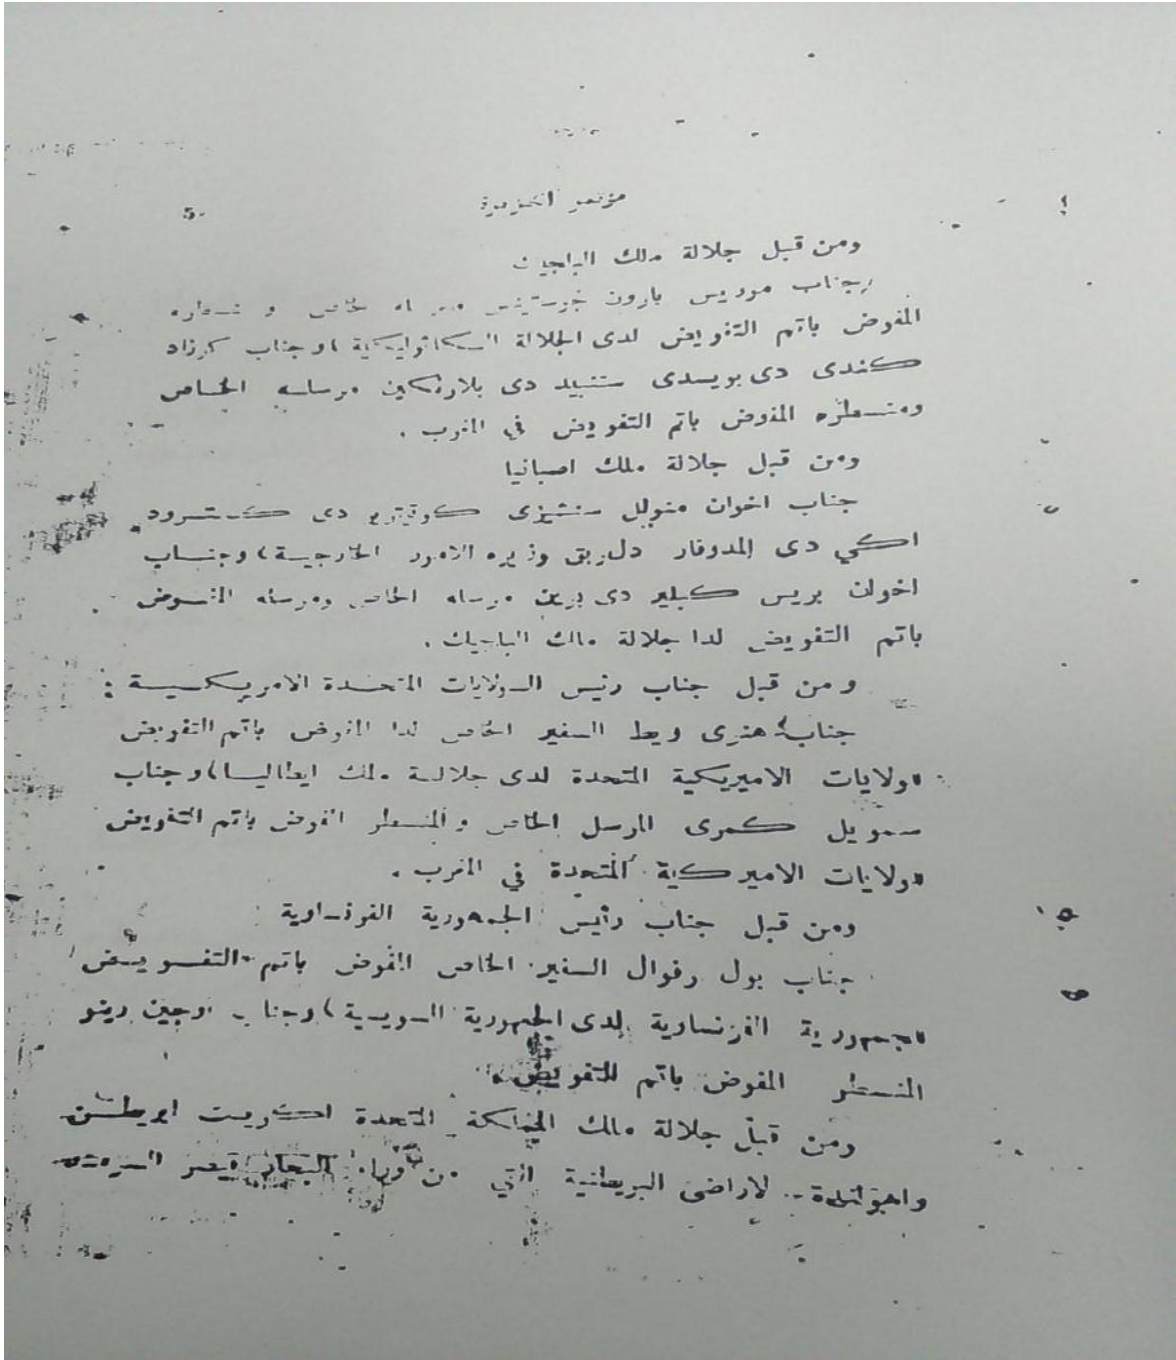 مؤتمر الجزيرة 5
ومن قبل جلالة ملك الباجيك
جناب موريس بارون خاص و
المفوض باتم التفويض لدى الجلالة الكاتوليكية) وجناب كونراد
كندى دى بويسدى ستنبيد دى بلارنكين مرساه الخاص
ومنسطره المفوض باتم التفويض في المغرب .
ومن قبل جلالة ملك اصبانيا
جناب اخوان منويل سنشيزى كوتيتريو دى كسترود
اكي دى المدوفار دل ريق وزيره الامور الخارجية) وجناب
اخوان بريس كبلير دى مرساه الخاص ومرسله المفوض
باتم التفويض لدا جلالة مالك الباجيك .
ومن قبل جناب رئيس الولايات المتحدة الامريكية :
جناب هنرى ويط السفير الخاص لدا المفوض باتم التفويض
ولايات الاميريكية المتحدة لدى جلالة ملك ايطاليا) وجناب
سمويل كمرى المرسل الخاص والمنسطر المفوض باتم التفويض
ولايات الاميركية المتحدة في المغرب .
ومن قبل جناب رأيس الجمهورية الفرنساوية
جناب بول رفوال السفير الخاص المفوض باتم التفويض
جمهورية الفرنساوية لدى الجمهورية السويسية) وجناب اوجين رينو
المنسطر المفوض باتم التفويض .
ومن قبل جلالة مالك المملكة المتحدة اكريت ابريطن
لاراضى البريطنية التي من وراء البحار قيصر